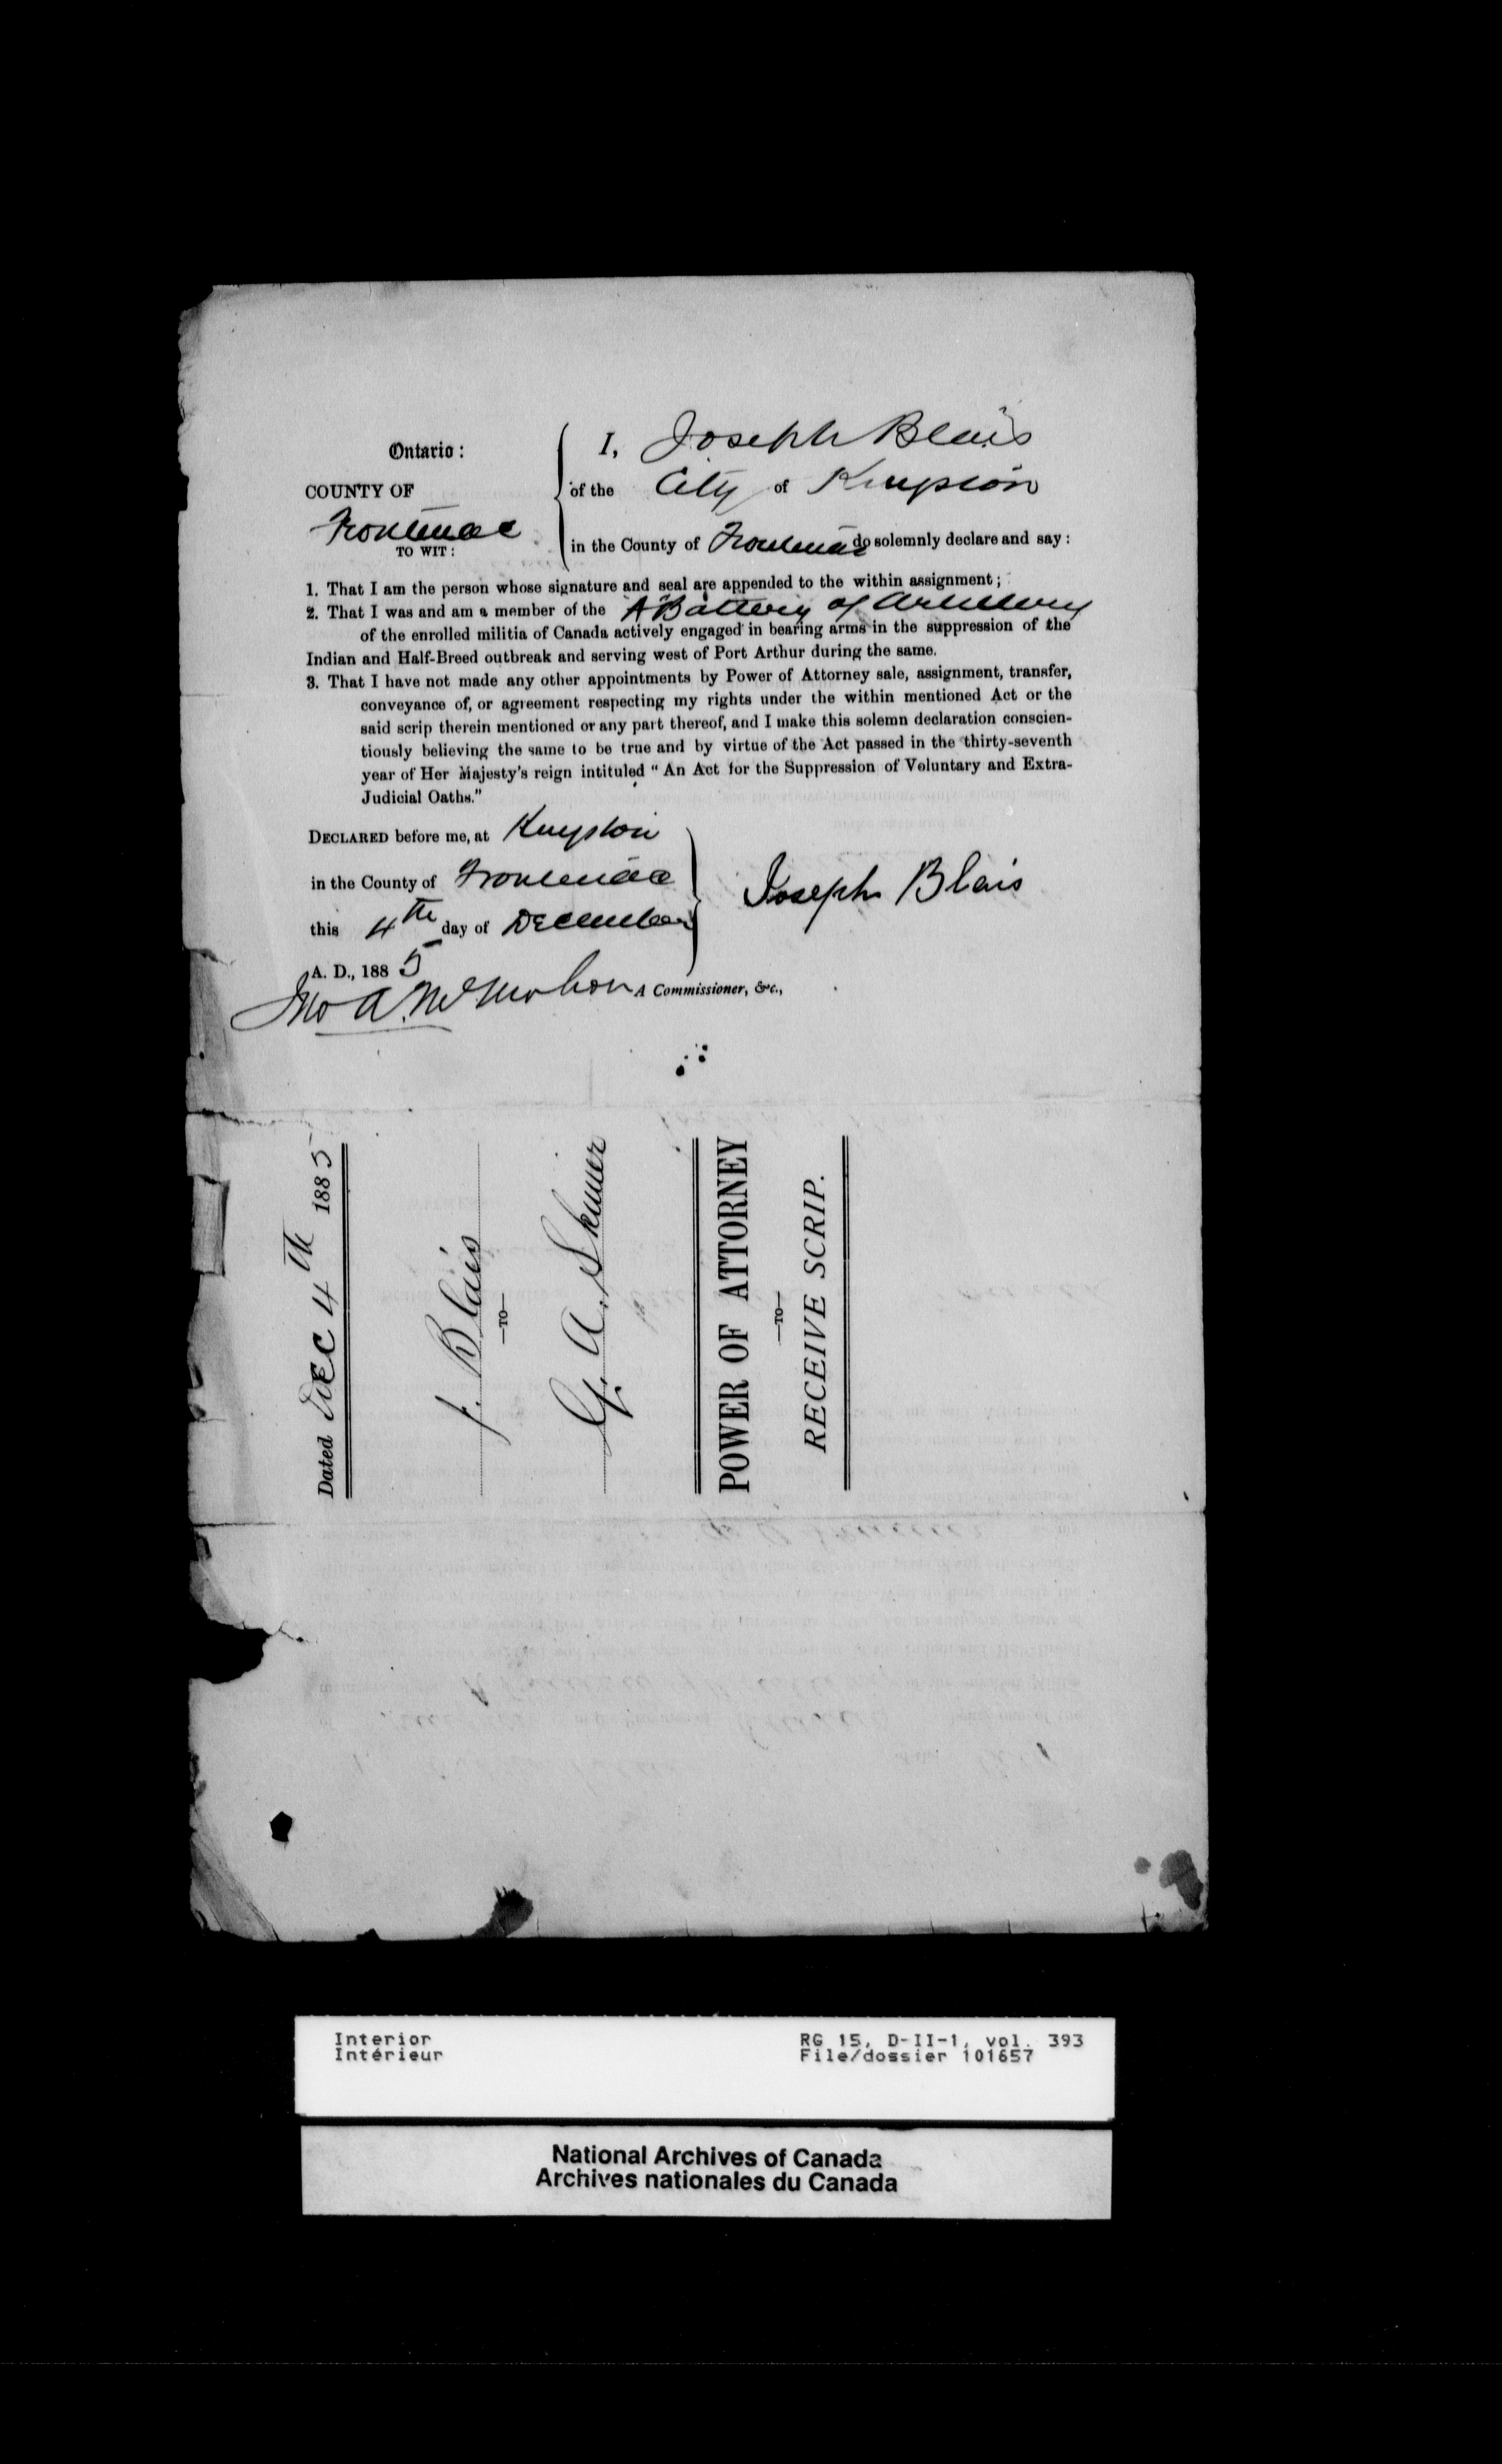 Ontario :
COUNTY OF
Frontenac
TO WIT :
I, Joseph Blais
of the City of Kingston
in the County of Frontenac do solemnly declare and say :
1. That I am the person whose signature and seal are appended to the within assignment ;
2. That I was and am a member of the A Battery of Artillery
of the enrolled militia of Canada actively engaged in bearing arms in the suppression of the
Indian and Half-Breed outbreak and serving west of Port Arthur during the same.
3. That I have not made any other appointments by Power of Attorney sale, assignment, transfer,
conveyance of, or agreement respecting my rights under the within mentioned Act or the
said scrip therein mentioned or any part thereof, and I make this solemn declaration conscien-
tiously believing the same to be true and by virtue of the Act passed in the thirty-seventh
year of Her Majesty's reign intituled “ An Act for the Suppression of Voluntary and Extra-
Judicial Oaths.”
DECLARED before me, at Kingston
in the County of Frontenac
this 4th day of December
A. D., 1885
Joseph Blais
Jno A. McMahon A Commissioner, &c.,
Dated Dec 4th 1885
J. Blais
—TO—
G. A. Skinner
POWER OF ATTORNEY
—TO—
RECEIVE SCRIP.
Interior
Intérieur
RG 15, D-II-1, vol. 393
File/dossier 101657
National Archives of Canada
Archives nationales du Canada